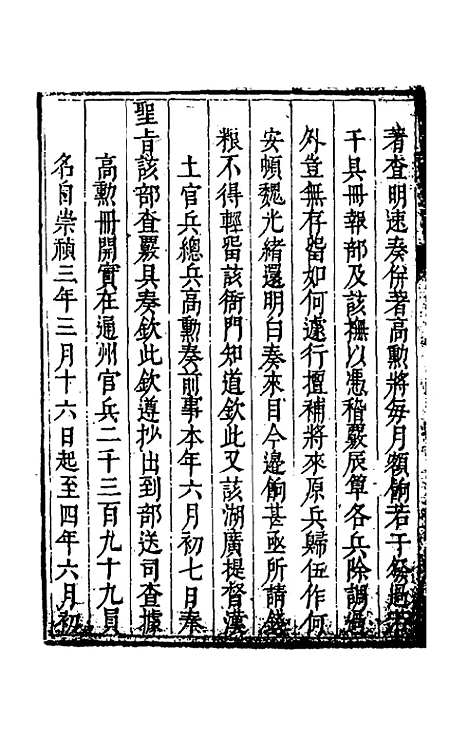 著查明速奏併著高勲將每月額餉若干發過若
干具冊報部及該撫以憑稽覈辰箪各兵除調過
外豈無存留如何遽行擅補將來原兵歸伍作何
安頓魏光緒還明白奏來目今邊餉甚亟所請錢
粮不得輕留該衙門知道欽此又該湖廣提督漢
土官兵總兵高勲奏前事本年六月初七日奉
聖旨該部查覈具奏欽此欽遵抄出到部送司查據
高勲冊開實在通州官兵二千三百九十九員
名自崇禎三年三月十六日起至四年六月初